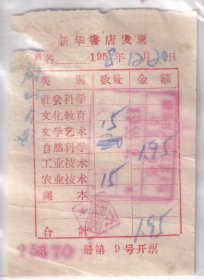 新华书店发票
1958年12月30日
类别 数量 金额
社会科学
文化教育 15
文学艺术
自然科学 195
工业技术
农业技术 15
课本
合计 195
册第9号开票